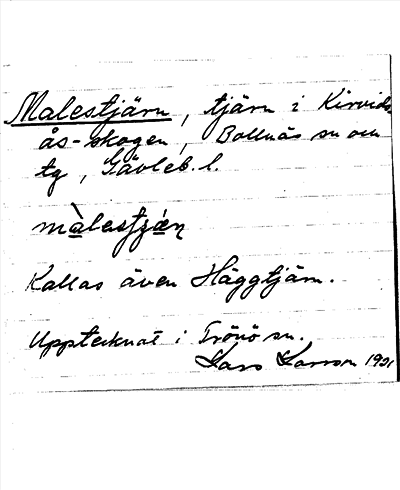 Malestjärn, tjärn i Kirvids
ås-skogen, Bollnäs sn och
tg, Gävleb. l.
màlestjạ́ṇ
Kallas även Häggtjärn.
Upptecknat i Trönö sn.
Lars Larsson 1921